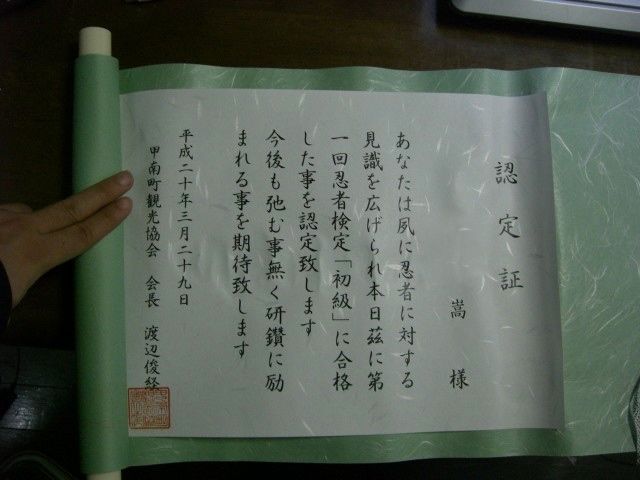 認定証
嵩 様
あなたは夙に忍者に対する
見識を広げられ本日茲に第
一回忍者検定「初級」に合格
した事を認定致します
今後も弛む事無く研鑽に励
まれる事を期待致します
平成二十年三月二十九日
甲南町観光協会 会長 渡辺俊経